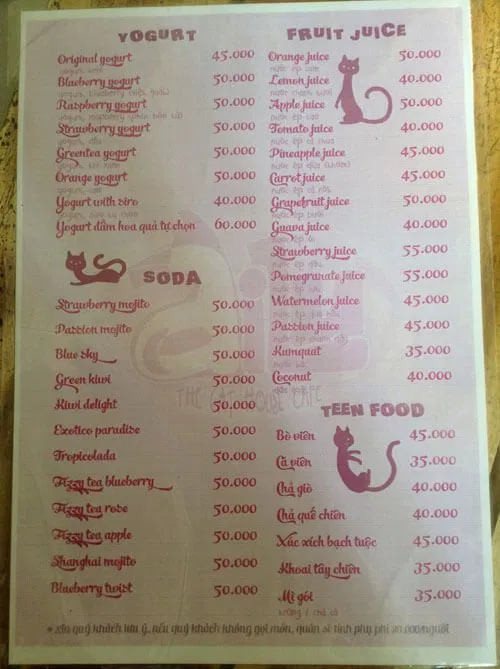 YOGURT
Original yogurt 45.000
Blueberry yogurt 50.000
Raspberry yogurt 50.000
Strawberry yogurt 50.000
yogurt dâu
Greentea yogurt 50.000
Orange yogurt 50.000
yogurt cam
Yogurt with siro 40.000
Yogurt dầm hoa quả tự chọn 60.000
SODA
Strawberry mojito 50.000
Passion mojito 50.000
Blue sky 50.000
Green kiwi 50.000
Kiwi delight 50.000
Exotico paradise 50.000
Tropicolada 50.000
Fizzy tea blueberry 50.000
Fizzy tea rose 50.000
Fizzy tea apple 50.000
Shanghai mojito 50.000
Blueberry twist 50.000
FRUIT JUICE
Orange juice 50.000
nước ép cam
Lemon juice 40.000
nước chanh tươi
Apple juice 50.000
nước ép táo
Tomato juice 40.000
nước ép cà chua
Pineapple juice 45.000
nước ép dứa (thơm)
Carrot juice 45.000
nước ép cà rốt
Grapefruit juice 50.000
nước ép bưởi
Guava juice 40.000
nước ép ổi
Strawberry juice 55.000
nước ép dâu
Pomegranate juice 55.000
nước ép lựu
Watermelon juice 45.000
nước ép dưa hấu
Passion juice 45.000
nước ép chanh dây
Kumquat 35.000
Coconut 40.000
THE CAT HOUSE CAFE
TEEN FOOD
Bò viên 45.000
Cá viên 35.000
Chả giò 40.000
Chả quế chiên 40.000
Xúc xích bạch tuộc 45.000
Khoai tây chiên 35.000
Mì gói 35.000
* xin quý khách lưu ý, nếu quý khách không gọi món, quán sẽ tính phụ phí 20.000/người